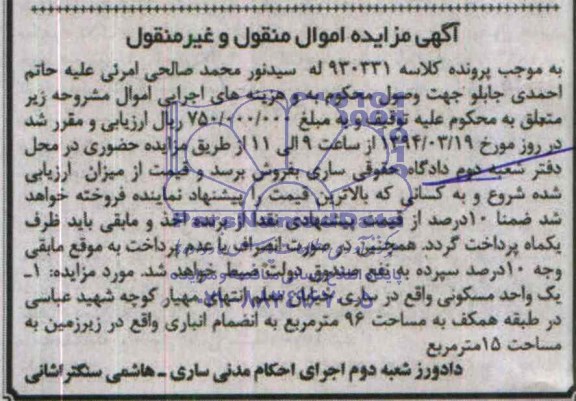 آگهی مزایده اموال منقول و غیرمنقول
به موجب پرونده کلاسه ۹۳۰۳۳۱ له سیدنور محمد صالحی امرئی علیه حاتم
احمدی جابلو جهت وصول محکوم به و هزینه های اجرایی اموال مشروحه زیر
متعلق به محکوم علیه توقیف و به مبلغ ۷۵۰/۰۰۰/۰۰۰ ریال ارزیابی و مقرر شد
در روز مورخ ۱۳۹۴/۰۳/۱۹ از ساعت ۹ الی ۱۱ از طریق مزایده حضوری در محل
دفتر شعبه دوم دادگاه حقوقی ساری بفروش برسد و قیمت از میزان ارزیابی
شده شروع و به کسانی که بالاترین قیمت را پیشنهاد نماینده فروخته خواهد
شد ضمنا ۱۰درصد از قیمت پیشنهادی نقدا از برنده اخذ و مابقی باید ظرف
یکماه پرداخت گردد. همچنین در صورت انصراف یا عدم پرداخت به موقع مابقی
وجه ۱۰درصد سپرده به نفع صندوق دولت ضبط خواهد شد. مورد مزایده: ۱-
یک واحد مسکونی واقع در ساری خیابان معلم انتهای مهیار کوچه شهید عباسی
در طبقه همکف به مساحت ۹۶ مترمربع به انضمام انباری واقع در زیرزمین به
مساحت ۱۵مترمربع
دادورز شعبه دوم اجرای احکام مدنی ساری - هاشمی سنگتراشانی